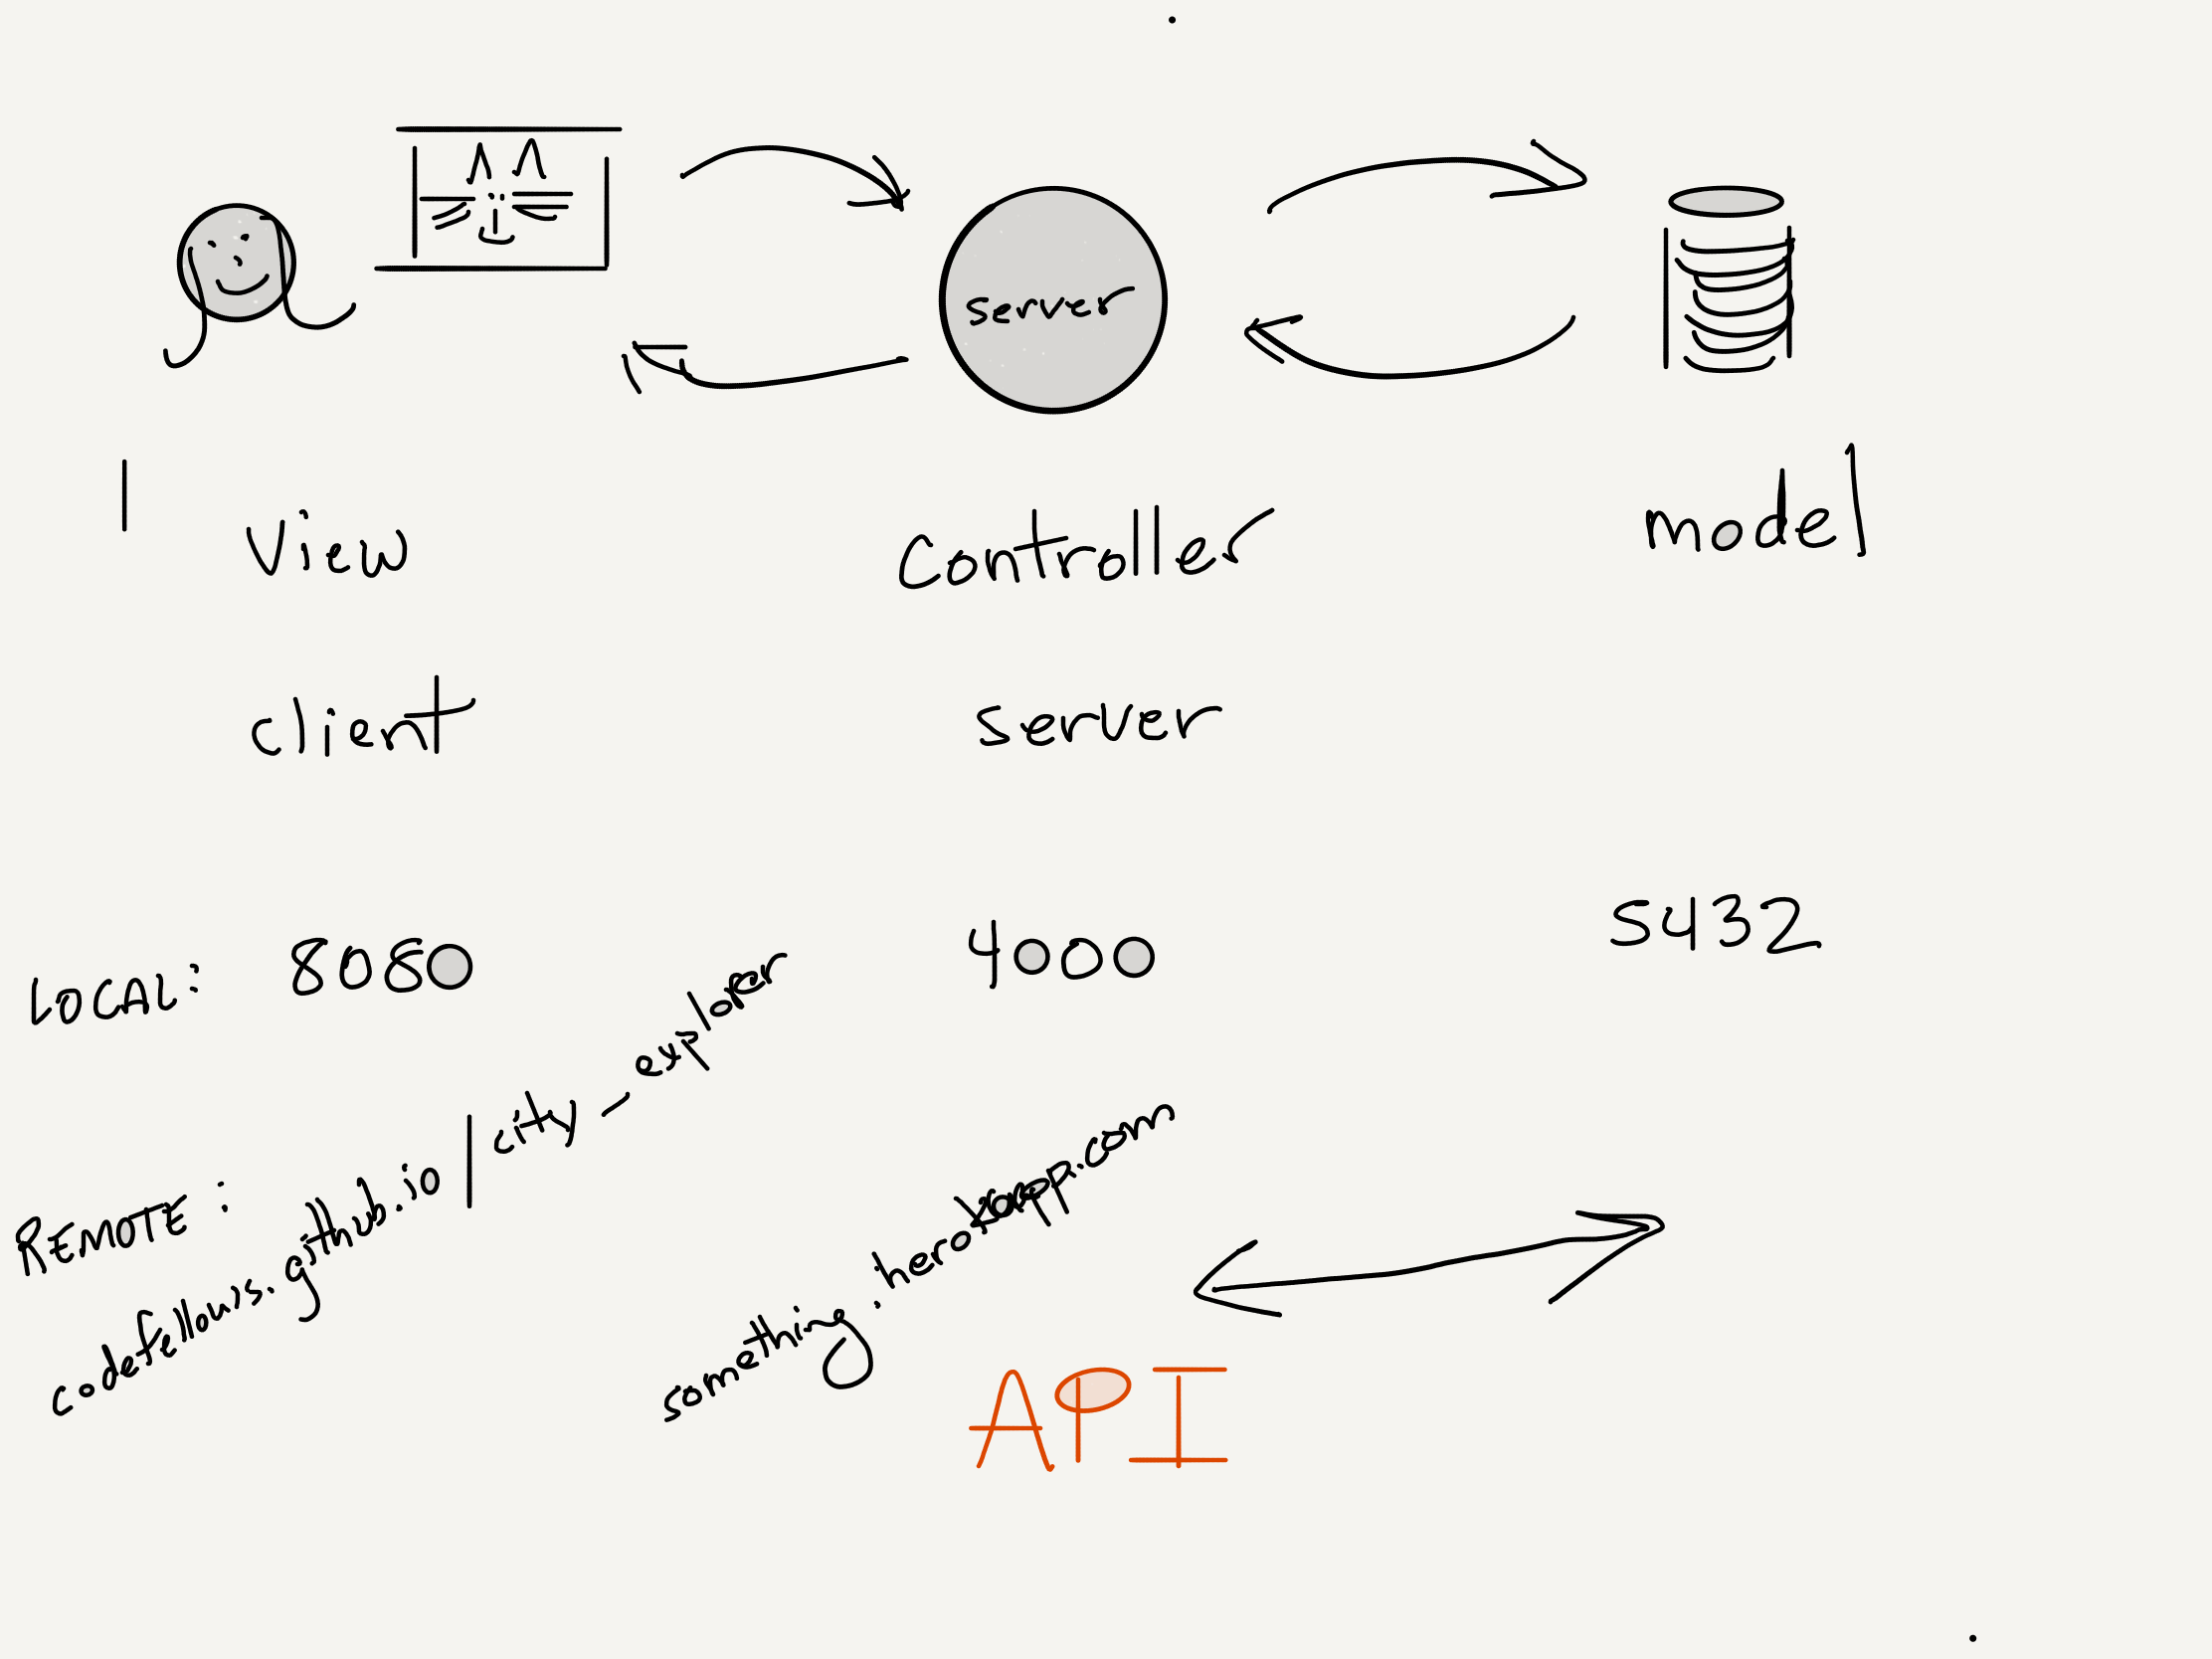 server
View controller model
client server
LOCAL: 8080 4000 5432
REMOTE: codefellows.github.io/city-explorer something.herokuapp.com
API